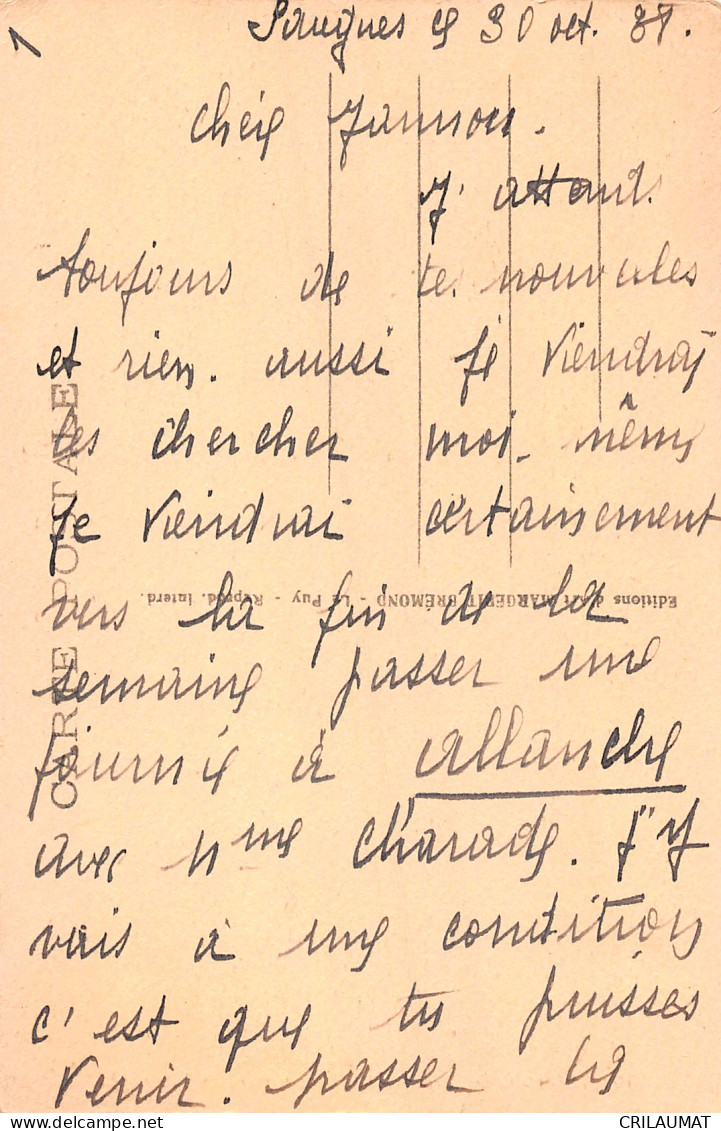 Saugues le 30 oct. 31.
cheie
J' attend.
toujours de te. nouvueles
et rien. aussi je viendrai
les chercher moi. même
je viendrai certainement
vers la fin de la
semaine passer une
journée à allanche
avec Mme Charade. j'y
vais à une condition
c'est que tu puisses
venir. passer la
CARTE POSTALE
Editions d'Art MARGERIT-BRÉMOND - Le Puy - Reprod. Interd.
CRILAUMAT